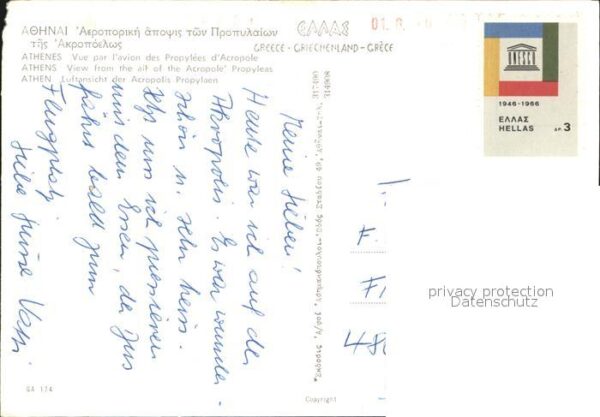 ΑΘΗΝΑΙ Ἀεροπορική ἄποψις τῶν Προπυλαίων
τῆς Ἀκροπόλεως
ATHENES Vue par l'avion des Propylées d'Acropole
ATHENS View from the all of the Acropole' Propyleas
ATHEN Luftansicht der Acropolis Propylaen
ΕΛΛΑΣ
GREECE - GRIECHENLAND - GRÈCE
01. 8.
1946-1966
ΕΛΛΑΣ
HELLAS
ΔΡ. 3
317490
314908
Meine Lieben!
Heute war ich auf der
Akropolis. Es war wunder
schön u. sehr heiss.
Jetz mus ich pressieren
mit dem Essen, der Bus
fährt bald zum
Flugplatz.
Liebe Grüsse
F.
480
privacy protection
Datenschutz
GA 174
Copyright